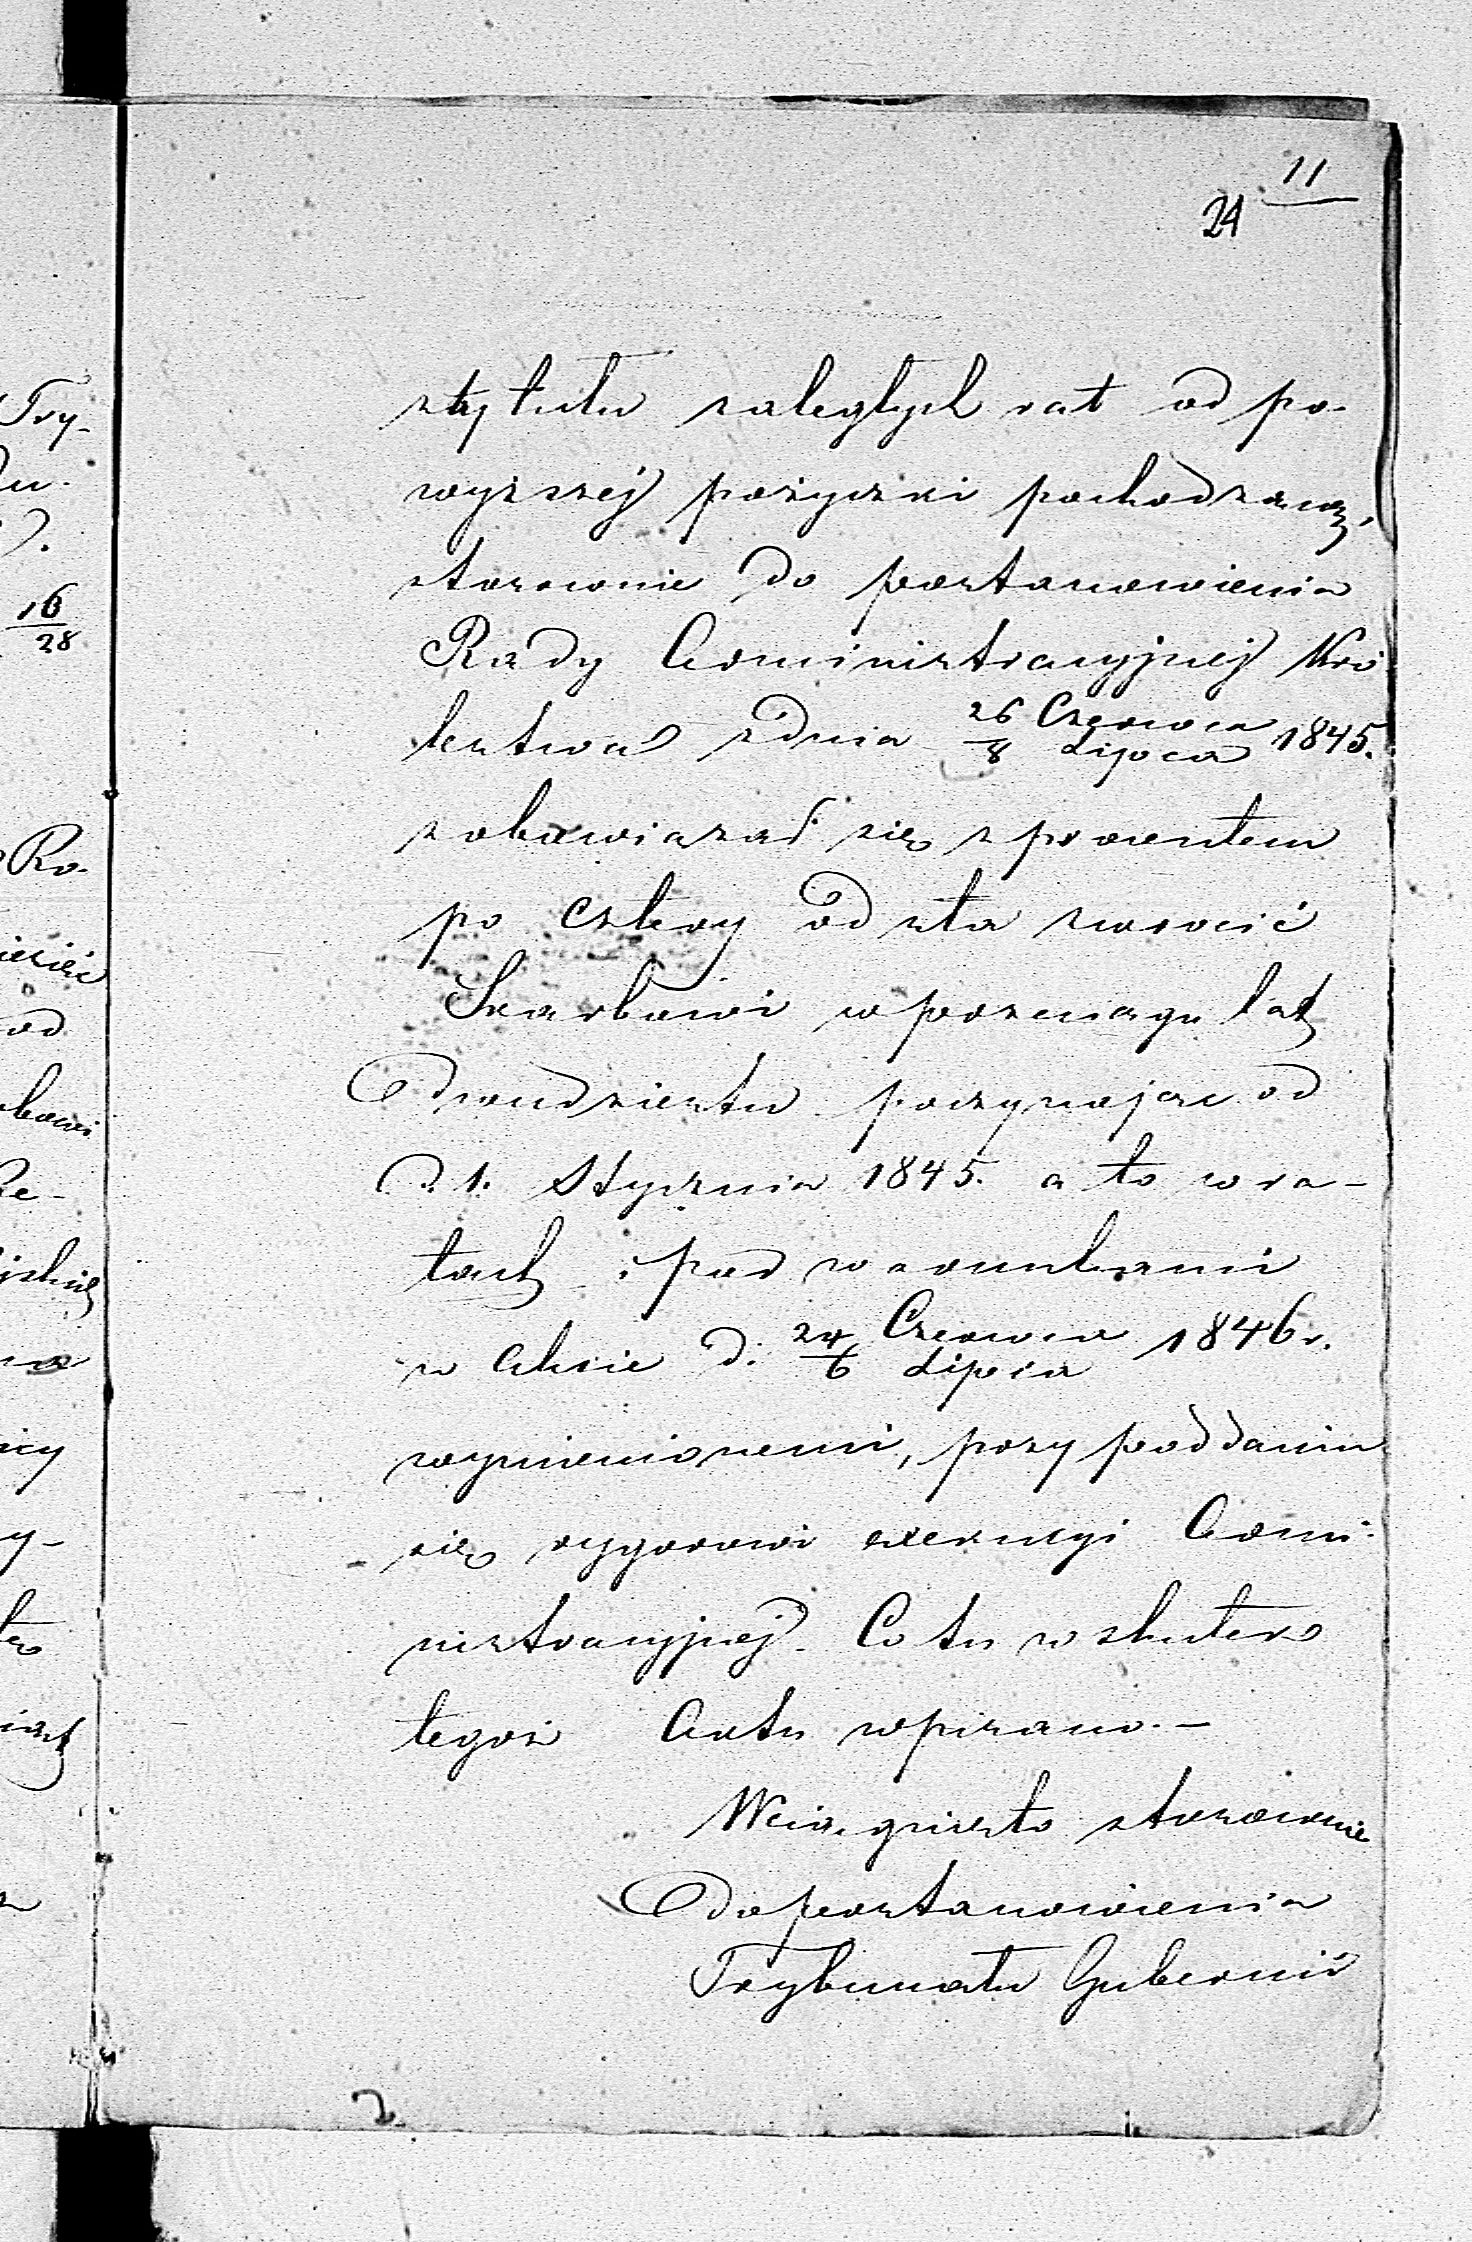 11
24
z tytułu zaległych rat od po-
wyższéj pożyczki pochodzącą,
stosownie do postanowienia
Rady Administracyjnéj Kró
lestwa z dnia 26 Czerwca / 8 Lipca 1845.
zobowiązał się z procentem
po cztery od sta zwrócić
Skarbowi w przeciągu lat
dwudziestu poczynając od
d. 1. Stycznia 1845. a to w ra-
tach i pod warunkami
w Akcie d. 24 Czerwca / 6 Lipca 1846 r.
wymienionemi, przy poddaniu
się rygorowi exekucyi Admi-
nistracyjnéj. Co tu w skutek
tegoż Aktu wpisano. —
Wciągnięto stosownie
do postanowienia
Trybunału Gubernii